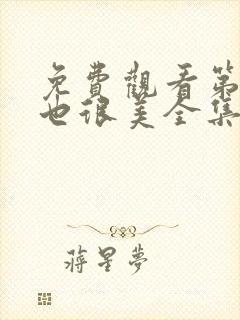 免費觀看第
也很美全集
蔣星夢